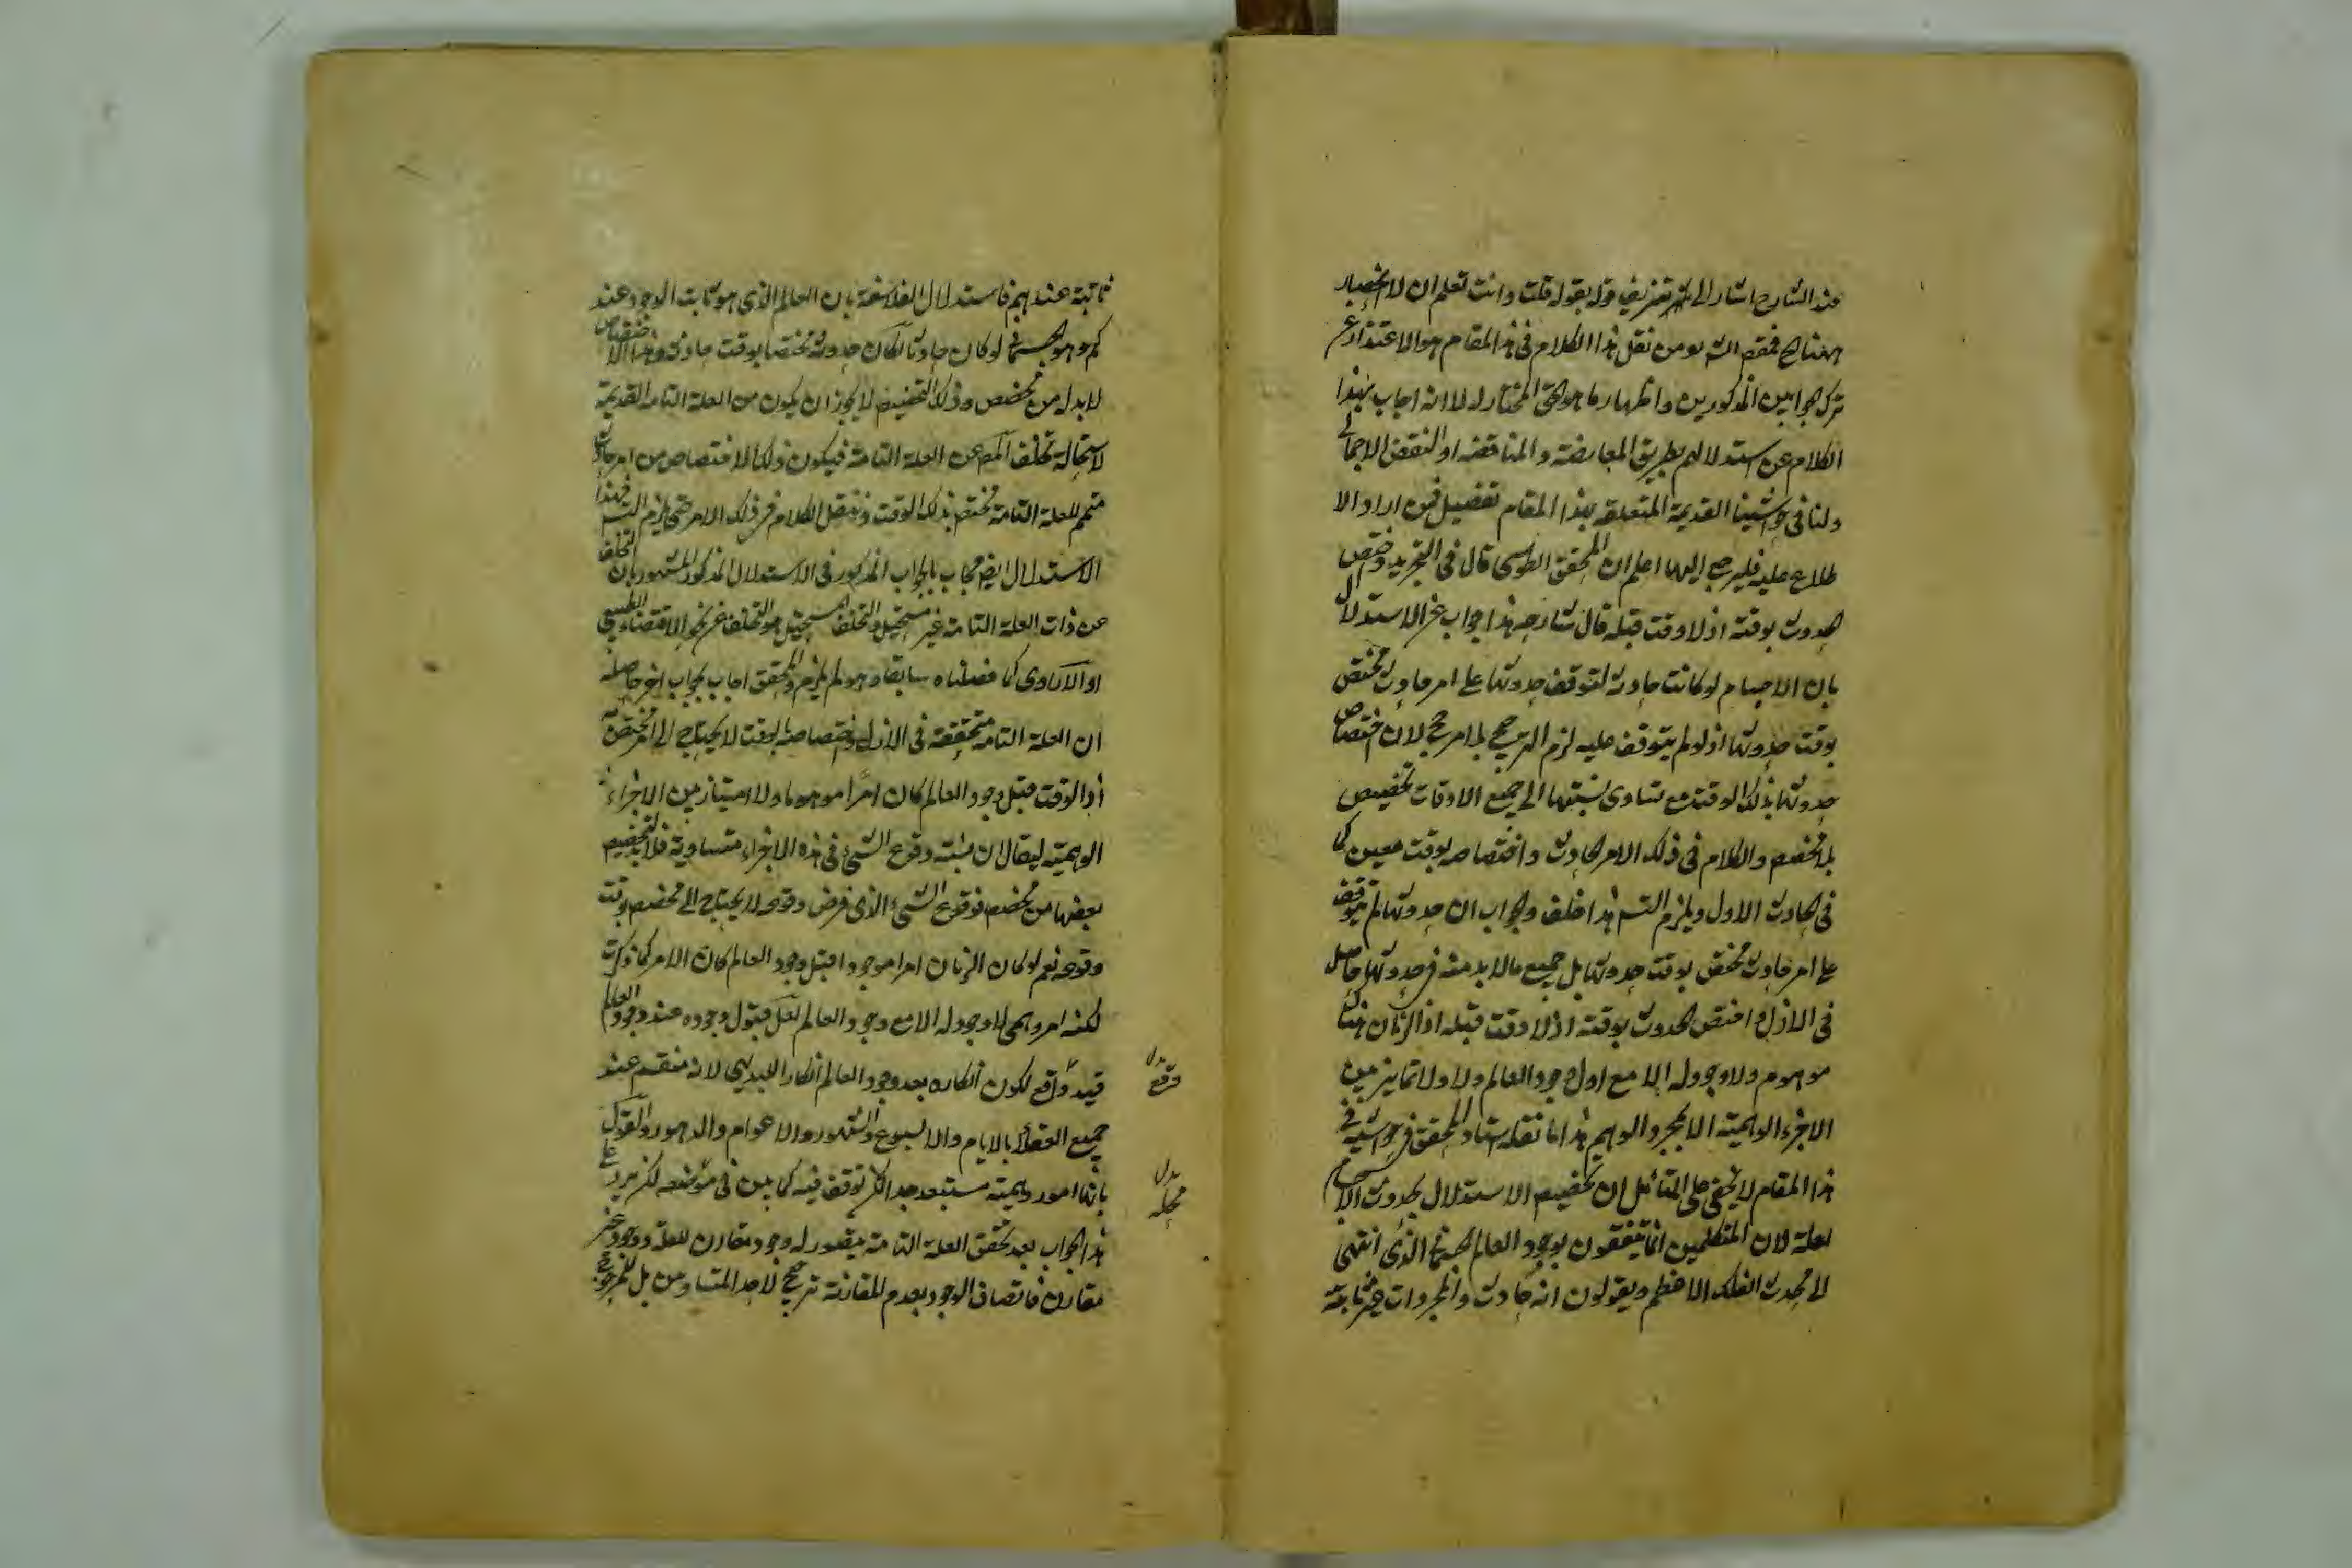 عند الشارح اشار الى تعريف قوله بقوله قلت وانت تعلم ان لا انحصار
ههنا الخ فمقصد الش ره من نقل هذا الكلام فى هذا المقام هو الاعتذار عن
ترك الجوابين المذكورين واظهار ما هو الحق المختار له لا انه اجاب بهذا
الكلام عن استدلالهم بطريق المعارضة والمناقضة او النقض الاجمالى
ولنا فى حواشينا القديمة المتعلقة بهذا المقام تفصيل فمن اراد الا
طلاع عليه فليرجع اليها اعلم ان المحقق الطوسى قال فى التجريد واختص
الحدوث بوقته اذ لا وقت قبله قال شارحه هذا جواب عن الاستدلال
بان الاجسام لو كانت حادثة لتوقف حدوثها على امر حادث مختص
بوقت حدوثها اذ لو لم يتوقف عليه لزم الترجيح بلا مرجح لان اختصاص
حدوثها بذلك الوقت مع تساوى نسبتها الى جميع الاوقات تخصيص
بلا مخصص والكلام فى ذلك الامر الحادث واختصاصه بوقت معين كما
فى الحادث الاول ويلزم التس هذا خلف والجواب ان حدوثها لم يتوقف
على امر حادث مختص بوقت حدوثها بل جميع ما لا بد منه فى حدوثها حاصل
فى الازل واختص الحدوث بوقته اذ لا وقت قبله اذ الزمان هناك
موهوم ولا وجود له الا مع اول وجود العالم ولا تمايز بين
الاجزاء الوهمية الا بمجرد الوهم هذا ما نقله استاد المحقق فى حواشيه فى
هذا المقام لا يخفى على المتأمل ان تخصيص الاستدلال بحدوث الاجسام
لعله لان المتكلمين انما يتفقون بوجود العالم الجسمانى الذى انتهى
الى محدث الفلك الاعظم ويقولون انه حادث والمجردات غير ثابتة
ثابتة عندهم فاستدلال الفلاسفة بان العالم الذى هو ثابت الوجود عند
كم وهو الجسمانى لو كان حادثا لكان حدوثه مختصا بوقت حادث وهذا الاختصاص
لا بد له من مخصص وذلك التخصيص لا يجوز ان يكون من العلة التامة القديمة
لاستحالة تخلف المع عن العلة التامة فيكون ذلك الاختصاص من امر حادث
متمم للعلة التامة مختص بذلك الوقت وننقل الكلام فى ذلك الامر حتى يلزم التس فهذا
الاستدلال ايض يجاب بالجواب المذكور فى الاستدلال المذكور المشهور بان التخلف
عن ذات العلة التامة غير مستحيل والتخلف المستحيل هو التخلف عن نحو الاقتضاء الطبيعى
او الارادى كما فصلناه سابقا وهو لم يلزم والمحقق اجاب بجواب اخر حاصله
ان العلة التامة متحققة فى الازل واختصاصه بوقت لا يحتاج الى امر مختص به
اذ الوقت قبل وجود العالم كان امرا موهوما ولا امتياز بين الاجزاء
الوهمية ليقال ان نسبة وقوع الشئ فى هذه الاجزاء متساوية فلا بد لتخصيص
بعضها من مخصص فوقوع الشئ الذى فرض وقوعه لا يحتاج الى مخصص بوقت
وقوعه نعم لو كان الزمان امرا موجودا قبل وجود العالم كان الامر كما ذكرت
لكنه امر وهمى لا وجود له الا مع وجود العالم لعل قبول وجوده عند وجود العالم
قيد واقع لكون انكاره بعد وجود العالم انكار البديهى لانه منقسم عند
جميع العقلاء بالايام والاسبوع والشهور والاعوام والدهور والقول
بانها امور وهمية مستبعد جدا توقف فيه كما بين فى موضعه لكن يرد على
هذا الجواب بعد تحقق العلة التامة يتصور له وجود مقارن للعلة ووجود غير
مقارن فاتصاف الوجود بعدم المقارنة ترجيح لاحد المتساويين بل للمرجوح
بدل
بدل
محله